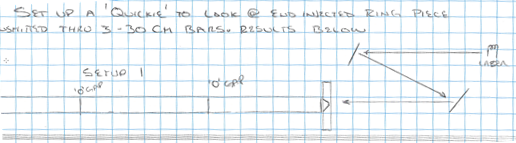 SET UP A 'QUICKIE' TO LOOK @ END INJECTED RING PIECE
SMITTED THRU 3-30 CM BARS. RESULTS BELOW
SETUP 1
'O' GAP
'O' GAP
LASER